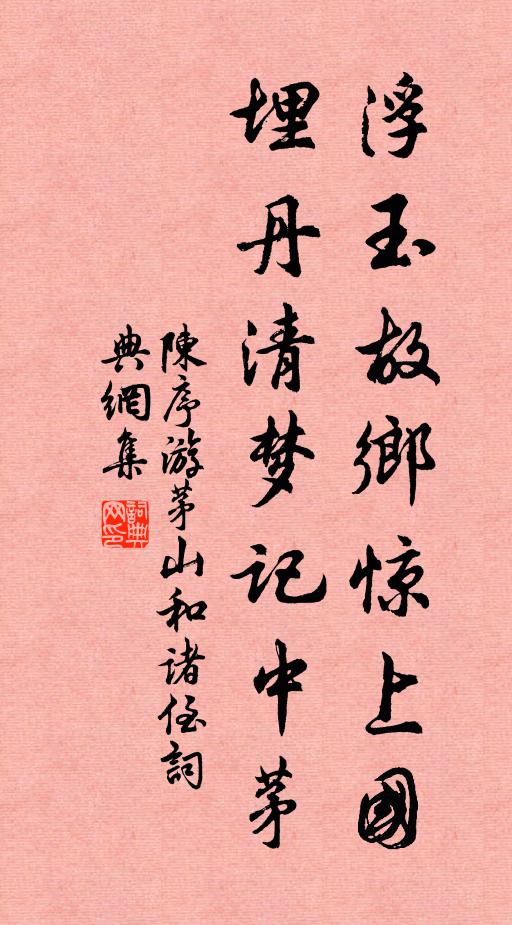 浮玉故鄉惊上國
埋丹清梦記中茅
陳序游茅山和诸侄詞
典網集
詞典
网印